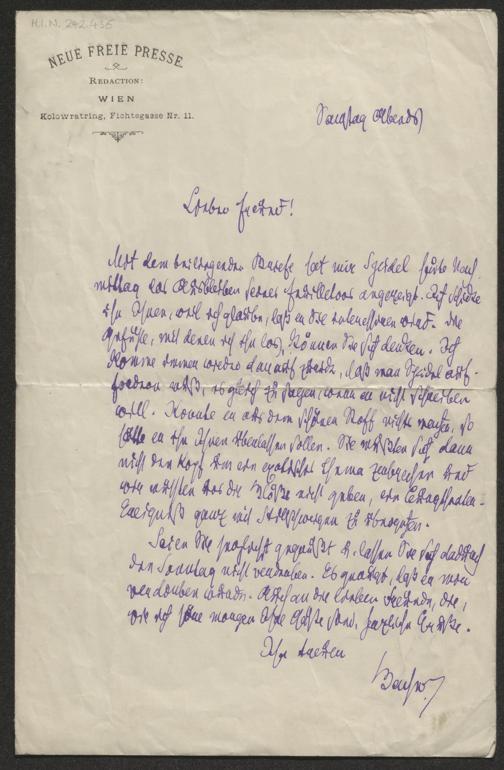 H.I.N. 242.435
NEUE FREIE PRESSE
REDACTION:
WIEN
Kolowratring, Fichtegasse Nr. 11.
Samstag Abends
Lieber Freund!
Mit dem beiliegenden Briefe hat mir Speidel heute Nach-
mittag das Ausbleiben seines Feuilletons angezeigt. Ich schicke
ihn Ihnen, weil ich glaube, daß er Sie interessieren wird. Die
Gefühle, mit denen ich ihn las, können Sie sich denken. Ich
komme immer wieder darauf zurück, daß man Speidel auf-
fordern muß, es gleich zu sagen, wenn er nicht schreiben
will. Konnte er aus dem schönen Stoff nichts machen, so
hätte er ihn Ihnen überlassen sollen. Sie müßten sich dann
nicht den Kopf um ein Thema zerbrechen und
wir müßten uns die Blöße nicht geben, ein
Ereigniß ganz mit Stillschweigen zu übergehen.
Seien Sie herzlichst gegrüßt u. lassen Sie sich dadurch
den Sonntag nicht verderben. Es genügt, daß er mir
verdorben wurde. Auch an die lieben Freunde, die,
wie ich höre morgen Ihre Gäste sind, herzliche Grüße.
Ihr treuer
Bacher